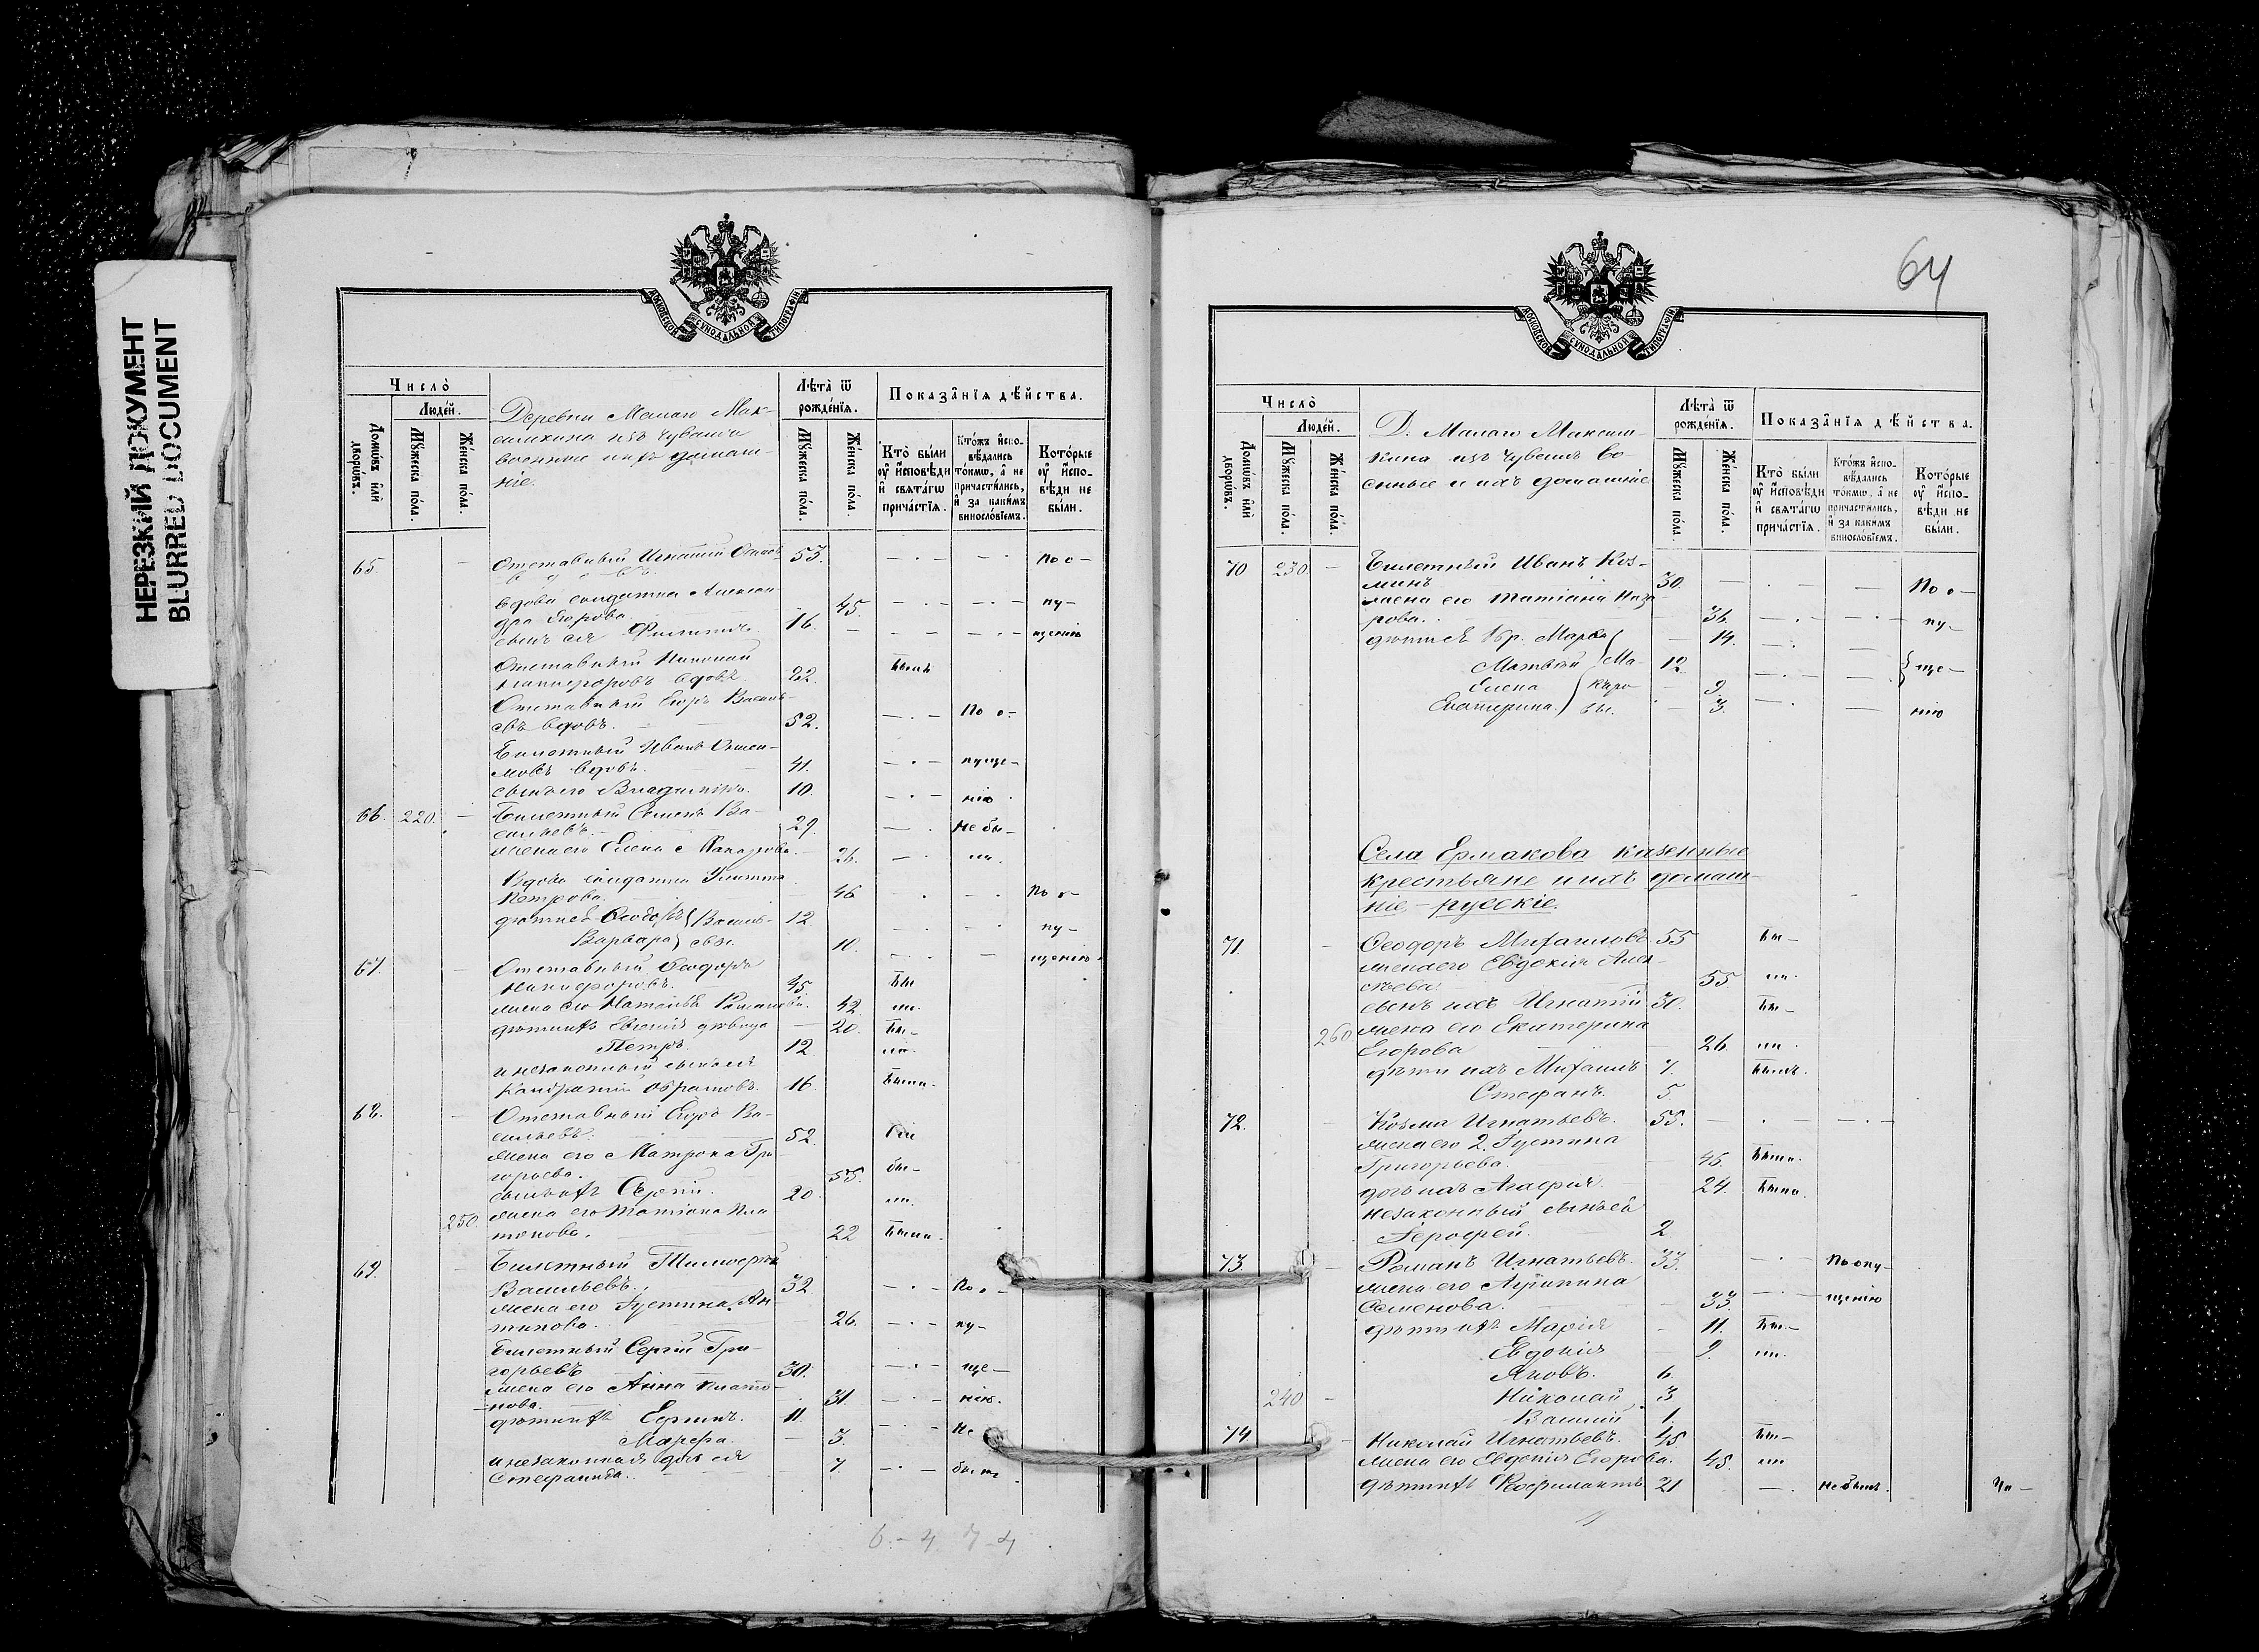 НЕРЕЗКИЙ ДОКУМЕНТ
BLURRED DOCUMENT
МОСКОВСКОЙ СѴНОДАЛЬНОЙ ТИПОГРАФІИ
Число̀
Людéй.
Домѡ́въ и҆лѝ дворѡ́въ.
Мꙋ́жеска по́ла.
Же́нска по́ла.
Деревни Малаго Мак-
симкина изъ чувашъ
военные и ихъ домаш-
ніе.
Лѣта̀ ѿ рожде́нїѧ.
Мꙋ́жеска по́ла.
Же́нска по́ла.
Показа̑нїѧ дѣ́йства.
Кто̀ бы́ли оу҆ и҆сповѣди и҆ свѧта́гѡ прича́стїѧ.
Кто́жъ и҆спо-вѣдались то́кмѡ, а҆ не причасти́лись, и҆ за каки́мъ винослові́емъ.
Кото́рые оу҆ и҆спо-вѣди не бы́ли.
65. Отставный Игнатій 53. По о-
вдова солдатка Алексан-
дра Егорова. 45. пу-
сынъ ея Филиппъ. 16. щенію
Отставный Николай
Никифоровъ вдовъ. 22. былъ
Отставный Егоръ Василь-
евъ вдовъ. 52. По о-
Билетный Иванъ
вдовъ. 41. пуще-
сынъ его Владиміръ. 10. нію
66. 220. Билетный Семенъ Ва-
сильевъ. 29. не бы-
жена его Елена 26. ли.
Вдова солдатка
Петрова. 46 По о-
дѣти ея Ѳеодоръ Василь- 12 пу-
Варвара евы. 10. щенію
67. Отставный Ѳеодоръ
Никифоровъ. 45. бы
жена его Наталья 42. ли.
дѣти ихъ Евгенія дѣвица 20. бы-
Петръ. 12. ли.
и незаконный сынъ ея
Кондратій 16. были.
68. Отставный Егоръ Ва-
сильевъ. 52.
жена его Матрона Гри-
горьева. 55. бы-
сынъ ихъ Сергій. 20. ли.
250. жена его Татіана Пла-
тонова. 22 была.
69. Билетный Тимоѳей
Васильевъ. 32. По о-
жена его Іустина Ан-
типова. 26. пу-
Билетный Сергій Гри-
горьевъ 30. ще-
жена его Анна Плато-
нова. 31. нію.
дѣти ихъ 11. Не
Марѳа. 3.
и незаконная дочь ея
Стефанида. 7. были
6-4 7-4
64
МОСКОВСКОЙ СѴНОДАЛЬНОЙ ТИПОГРАФІИ
Число̀
Людéй.
Домѡ́въ и҆лѝ дворѡ́въ.
Мꙋ́жеска по́ла.
Же́нска по́ла.
Д. Малаго Максим-
кина изъ чувашъ во-
енные и ихъ домашніе
Лѣта̀ ѿ рожде́нїѧ.
Мꙋ́жеска по́ла.
Же́нска по́ла.
Показа̑нїѧ дѣ́йства.
Кто̀ бы́ли оу҆ и҆сповѣди и҆ свѧта́гѡ прича́стїѧ.
Кто́жъ и҆спо-вѣдались то́кмѡ, а҆ не причасти́лись, и҆ за каки́мъ винослові́емъ.
Кото́рые оу҆ и҆спо-вѣди не бы́ли.
70 230. Билетный Иванъ Коз-
минъ 30. По о-
жена его Татіана Наза-
рова. 36. пу-
дѣти ея Марѳа 14.
Матвѣй Ма- 12. ще-
Елена 9.
Екатерина 3. нію
Села Ермакова казенные
крестьяне и ихъ домаш-
ніе, - русскіе.
71. Ѳеодоръ Михайловъ 55 бы-
жена его Евдокія Алек-
сѣева 55 ли.
сынъ ихъ Игнатій 30. бы-
260 жена его Екатерина
Егорова 26. ли.
дѣти ихъ Михаилъ 7. былъ.
Стефанъ. 5.
72. Козьма Игнатьевъ. 55.
жена его 2. Іустина
Григорьева. 45. была.
дочь ихъ Агафія. 24. была.
незаконный сынъ ея
Іероѳей. 2.
73. Романъ Игнатьевъ. 33. По опу-
жена его Агрипина
Семенова. 33. щенію
дѣти ихъ Марія 11. бы-
Евдокія 9. ли.
Яковъ. 6.
240. Николай 3
1.
74 Николай Игнатьевъ. 45. бы-
жена его Евдокія Егорова. 45. ли
дѣти их 21 не былъ.